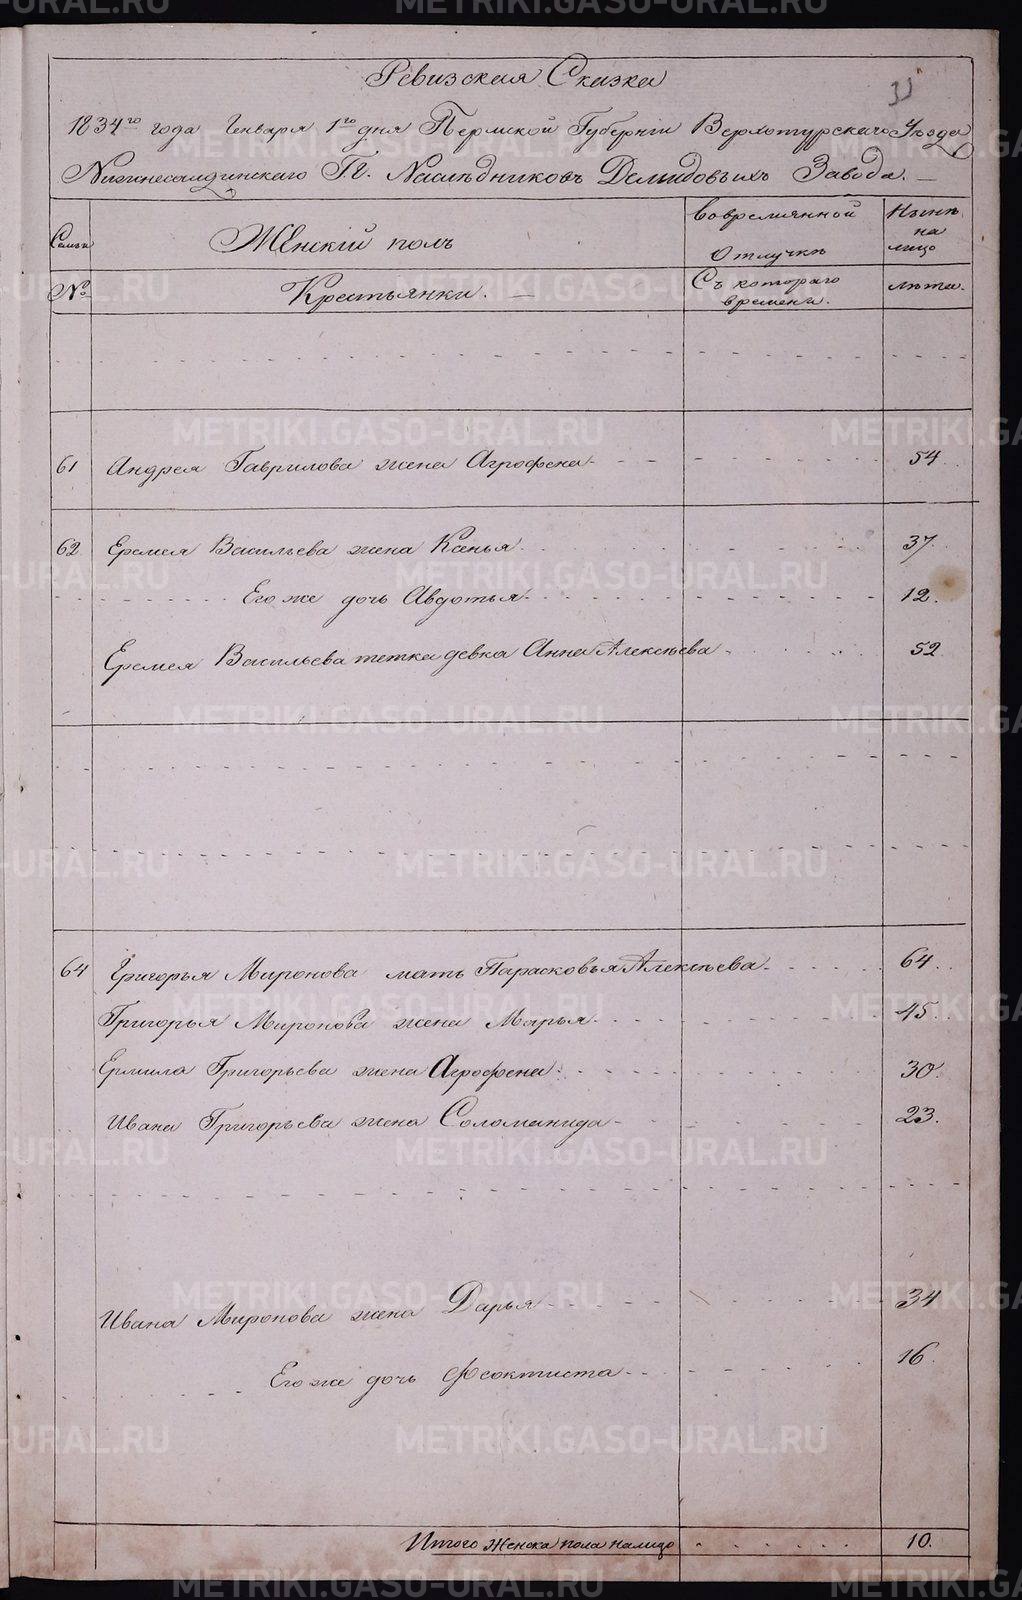 Ревизская Сказка
33
1834го года Генваря 1го дня Пермской Губернiи Верхотурскаго Уезда
Нижнесалдинскаго Гг. Наслѣдниковъ Демидовыхъ Завода.
Женскiй полъ
Во временной отлучкѣ
Нынѣ на лицо
Семьи
№
Крестьянки.
Съ котораго времени.
лѣта.
61 Андрея Гаврилова жена Агрофена 54
62 Еремея Васильева жена Ксенья 37.
Его же дочь Авдотья 12.
Еремея Васильева тетка девка Анна Алексѣева 52
64 Григорья Миронова мать Парасковья Алексѣева 64
Григорья Миронова жена Марья 45.
Ермила Григорьева жена Агрофена 30.
Ивана Григорьева жена Соломанида 23.
Ивана Миронова жена Дарья 34
Его же дочь Феоктиста 16.
Итого женска пола налицо 10.
METRIKI.GASO-URAL.RU